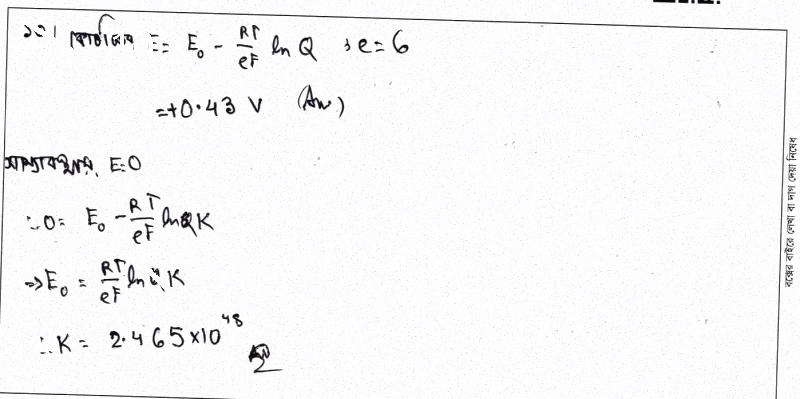 ১০। E = E₀ - RT/eF ln Q ; e = 6
= +0.43 V (Ans)
সাম্যাবস্থায়, E=0
∴ 0 = E₀ - RT/eF ln K
⇒ E₀ = RT/eF ln K
∴ K = 2.465×10⁴⁸
বক্সের বাইরে লেখা বা দাগ দেয়া নিষেধ